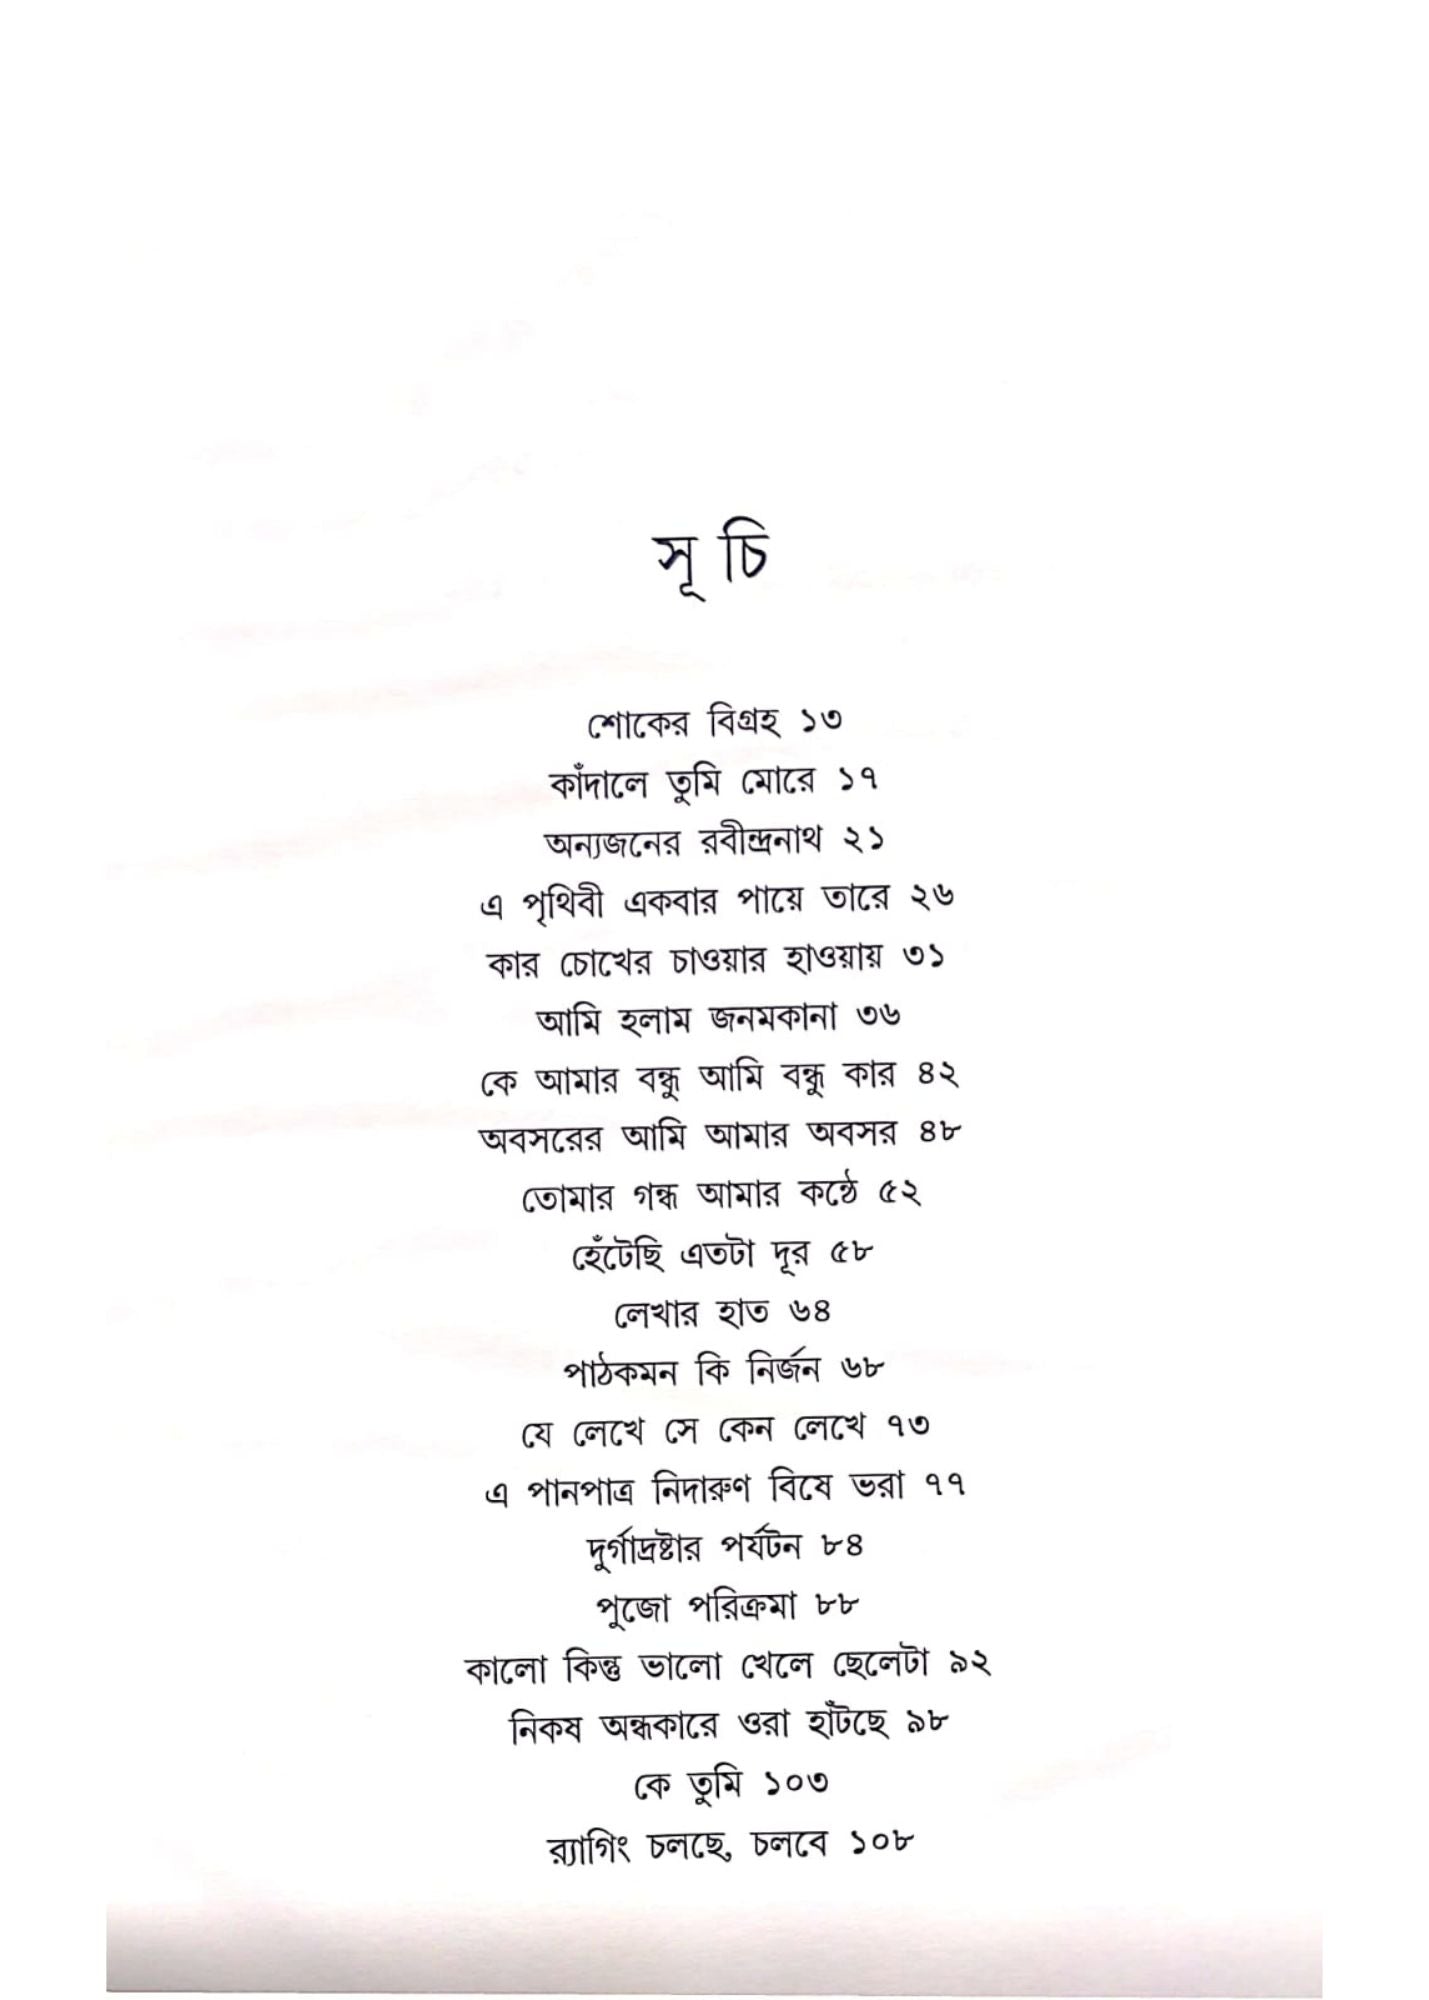 সূ চি
শোকের বিগ্রহ ১৩
কাঁদালে তুমি মোরে ১৭
অন্যজনের রবীন্দ্রনাথ ২১
এ পৃথিবী একবার পায়ে তারে ২৬
কার চোখের চাওয়ার হাওয়ায় ৩১
আমি হলাম জনমকানা ৩৬
কে আমার বন্ধু আমি বন্ধু কার ৪২
অবসরের আমি আমার অবসর ৪৮
তোমার গন্ধ আমার কণ্ঠে ৫২
হেঁটেছি এতটা দূর ৫৮
লেখার হাত ৬৪
পাঠকমন কি নির্জন ৬৮
যে লেখে সে কেন লেখে ৭৩
এ পানপাত্র নিদারুণ বিষে ভরা ৭৭
দুর্গাদ্রষ্টার পর্যটন ৮৪
পুজো পরিক্রমা ৮৮
কালো কিন্তু ভালো খেলে ছেলেটা ৯২
নিকষ অন্ধকারে ওরা হাঁটছে ৯৮
কে তুমি ১০৩
র‍্যাগিং চলছে, চলবে ১০৮